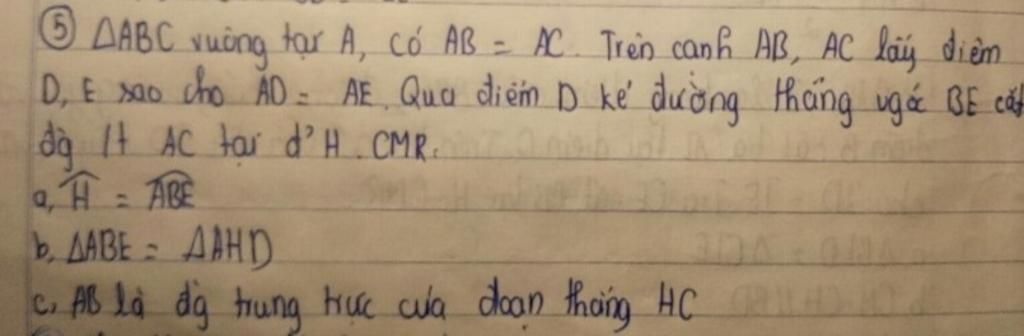 ⑤ ΔABC vuông tại A, có AB = AC. Trên cạnh AB, AC lấy điểm
D, E sao cho AD = AE. Qua điểm D kẻ đường thẳng vgóc BE cắt
đg 1t AC tại đ' H. CMR.
a, Ĥ = \widehat{ABE}
b, ΔABE = ΔAHD
c, AB là đg trung trực của đoạn thẳng HC